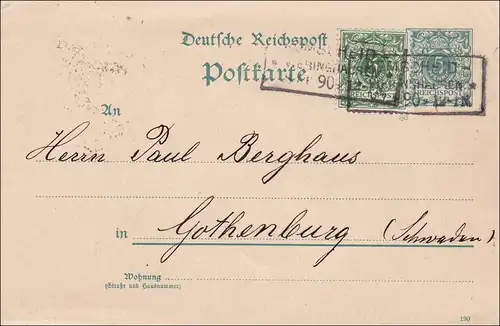 Deutsche Reichspost
Postkarte
5
5
REICHSPOST
REICHSPOST
90
90
An
Herrn Paul Berghaus
in Gothenburg (Schweden)
Wohnung
(Straße und Hausnummer)
190